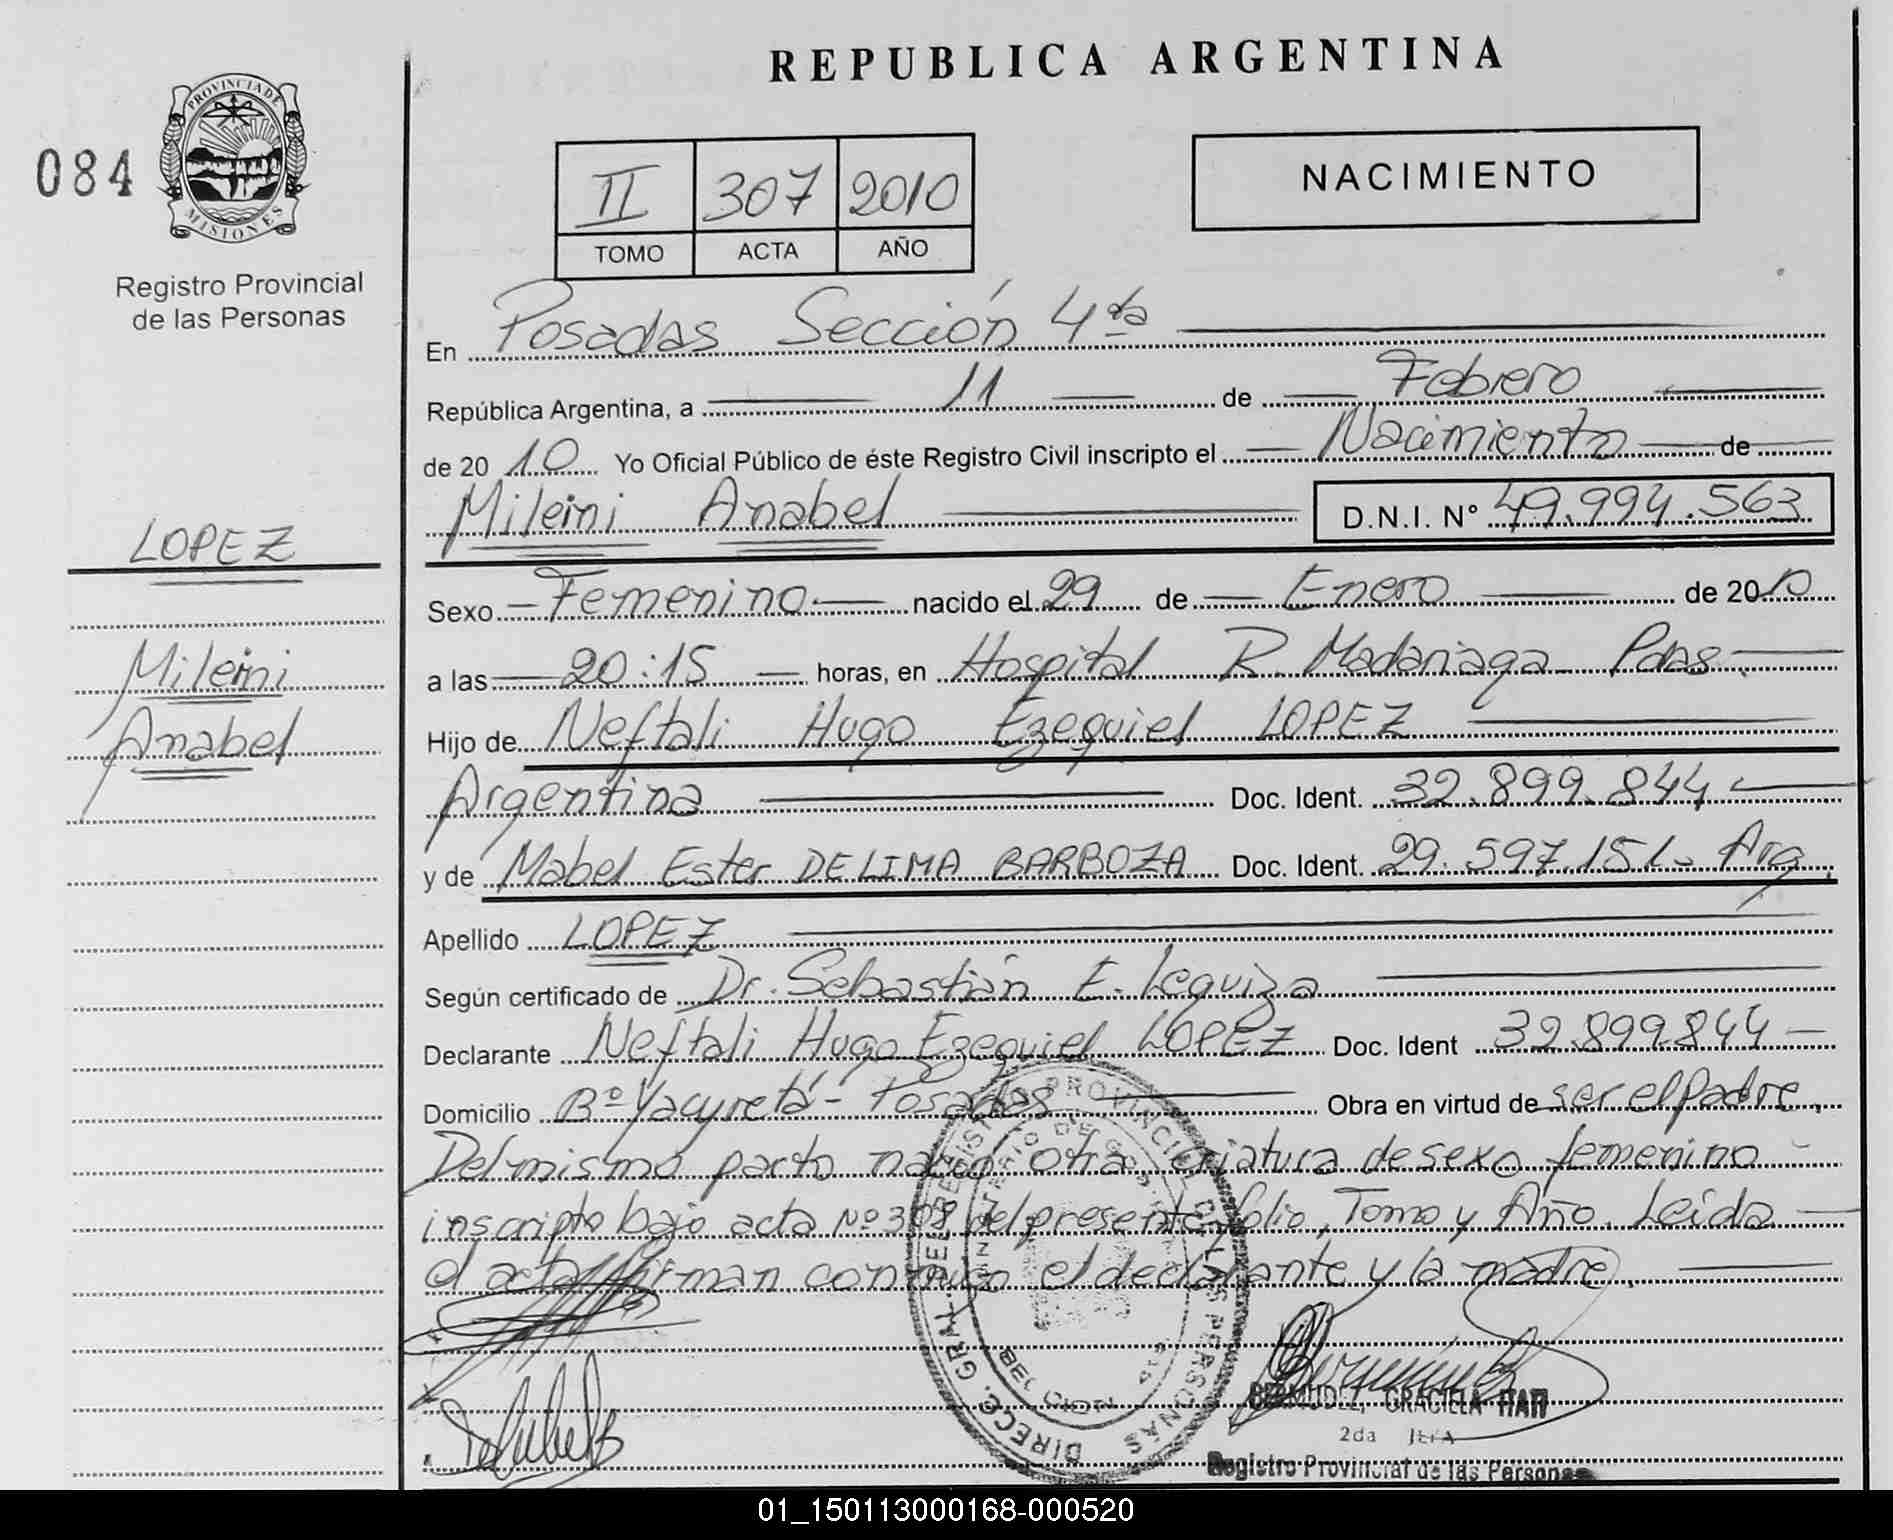 REPUBLICA ARGENTINA
084
PROVINCIA DE
MISIONES
Registro Provincial
de las Personas
II 307 2010
TOMO ACTA AÑO
NACIMIENTO
En Posadas Sección 4ta
República Argentina, a 11 de Febrero
de 2010 Yo Oficial Público de éste Registro Civil inscripto el Nacimiento de
Mileini Anabel D.N.I. Nº 49.994.563
LOPEZ
Mileini
Anabel
Sexo Femenino nacido el 29 de Enero de 2010
a las 20:15 horas, en Hospital R. Madariaga Pdas.
Hijo de Neftali Hugo Ezequiel LOPEZ
Argentina Doc. Ident. 32.899.844
y de Mabel Ester DE LIMA BARBOZA Doc. Ident. 29.597.151- Arg.
Apellido LOPEZ
Según certificado de Dr. Sebastián E. Leguiza
Declarante Neftali Hugo Ezequiel LOPEZ Doc. Ident 32.899.844
Domicilio Bº Yacyretá - Posadas Obra en virtud de ser el padre.
Del mismo parto nació otra criatura de sexo femenino
inscripto bajo acta Nº 308 del presente folio, Tomo y Año. Leída
el acta firman conmigo el declarante y la madre.
DIREC. GRAL. DEL REGISTRO PROVINCIAL DE LAS PERSONAS
BERMUDEZ, GRACIELA ITATI
2da JEFA
Registro Provincial de las Personas
01_150113000168-000520